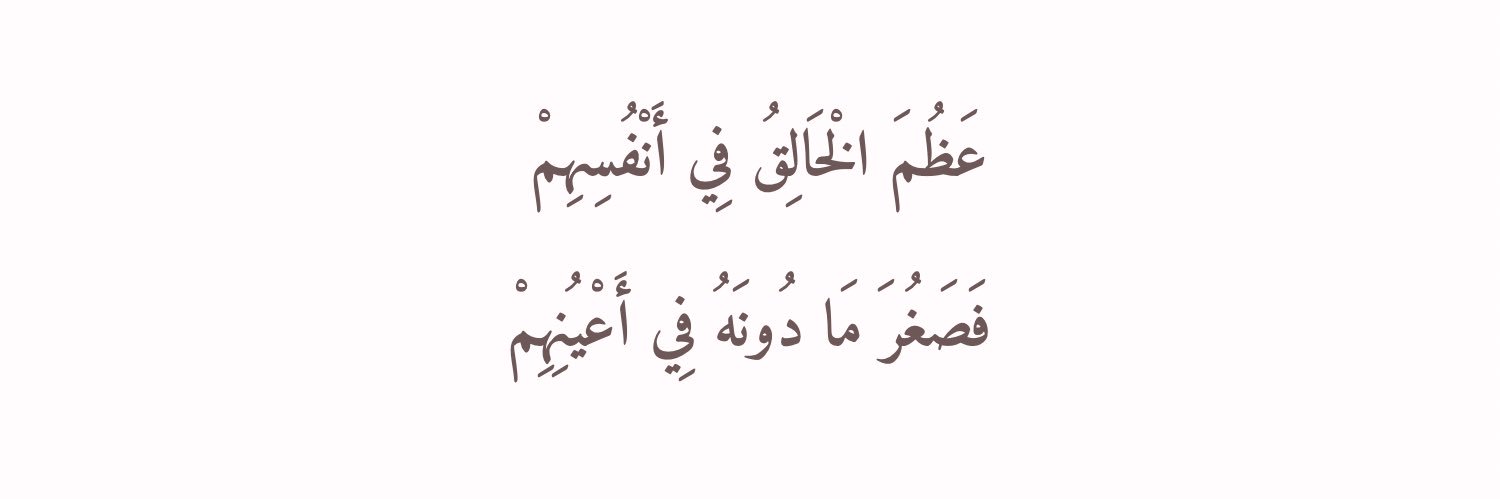 عَظُمَ الْخَالِقُ فِي أَنْفُسِهِمْ
فَصَغُرَ مَا دُونَهُ فِي أَعْيُنِهِمْ